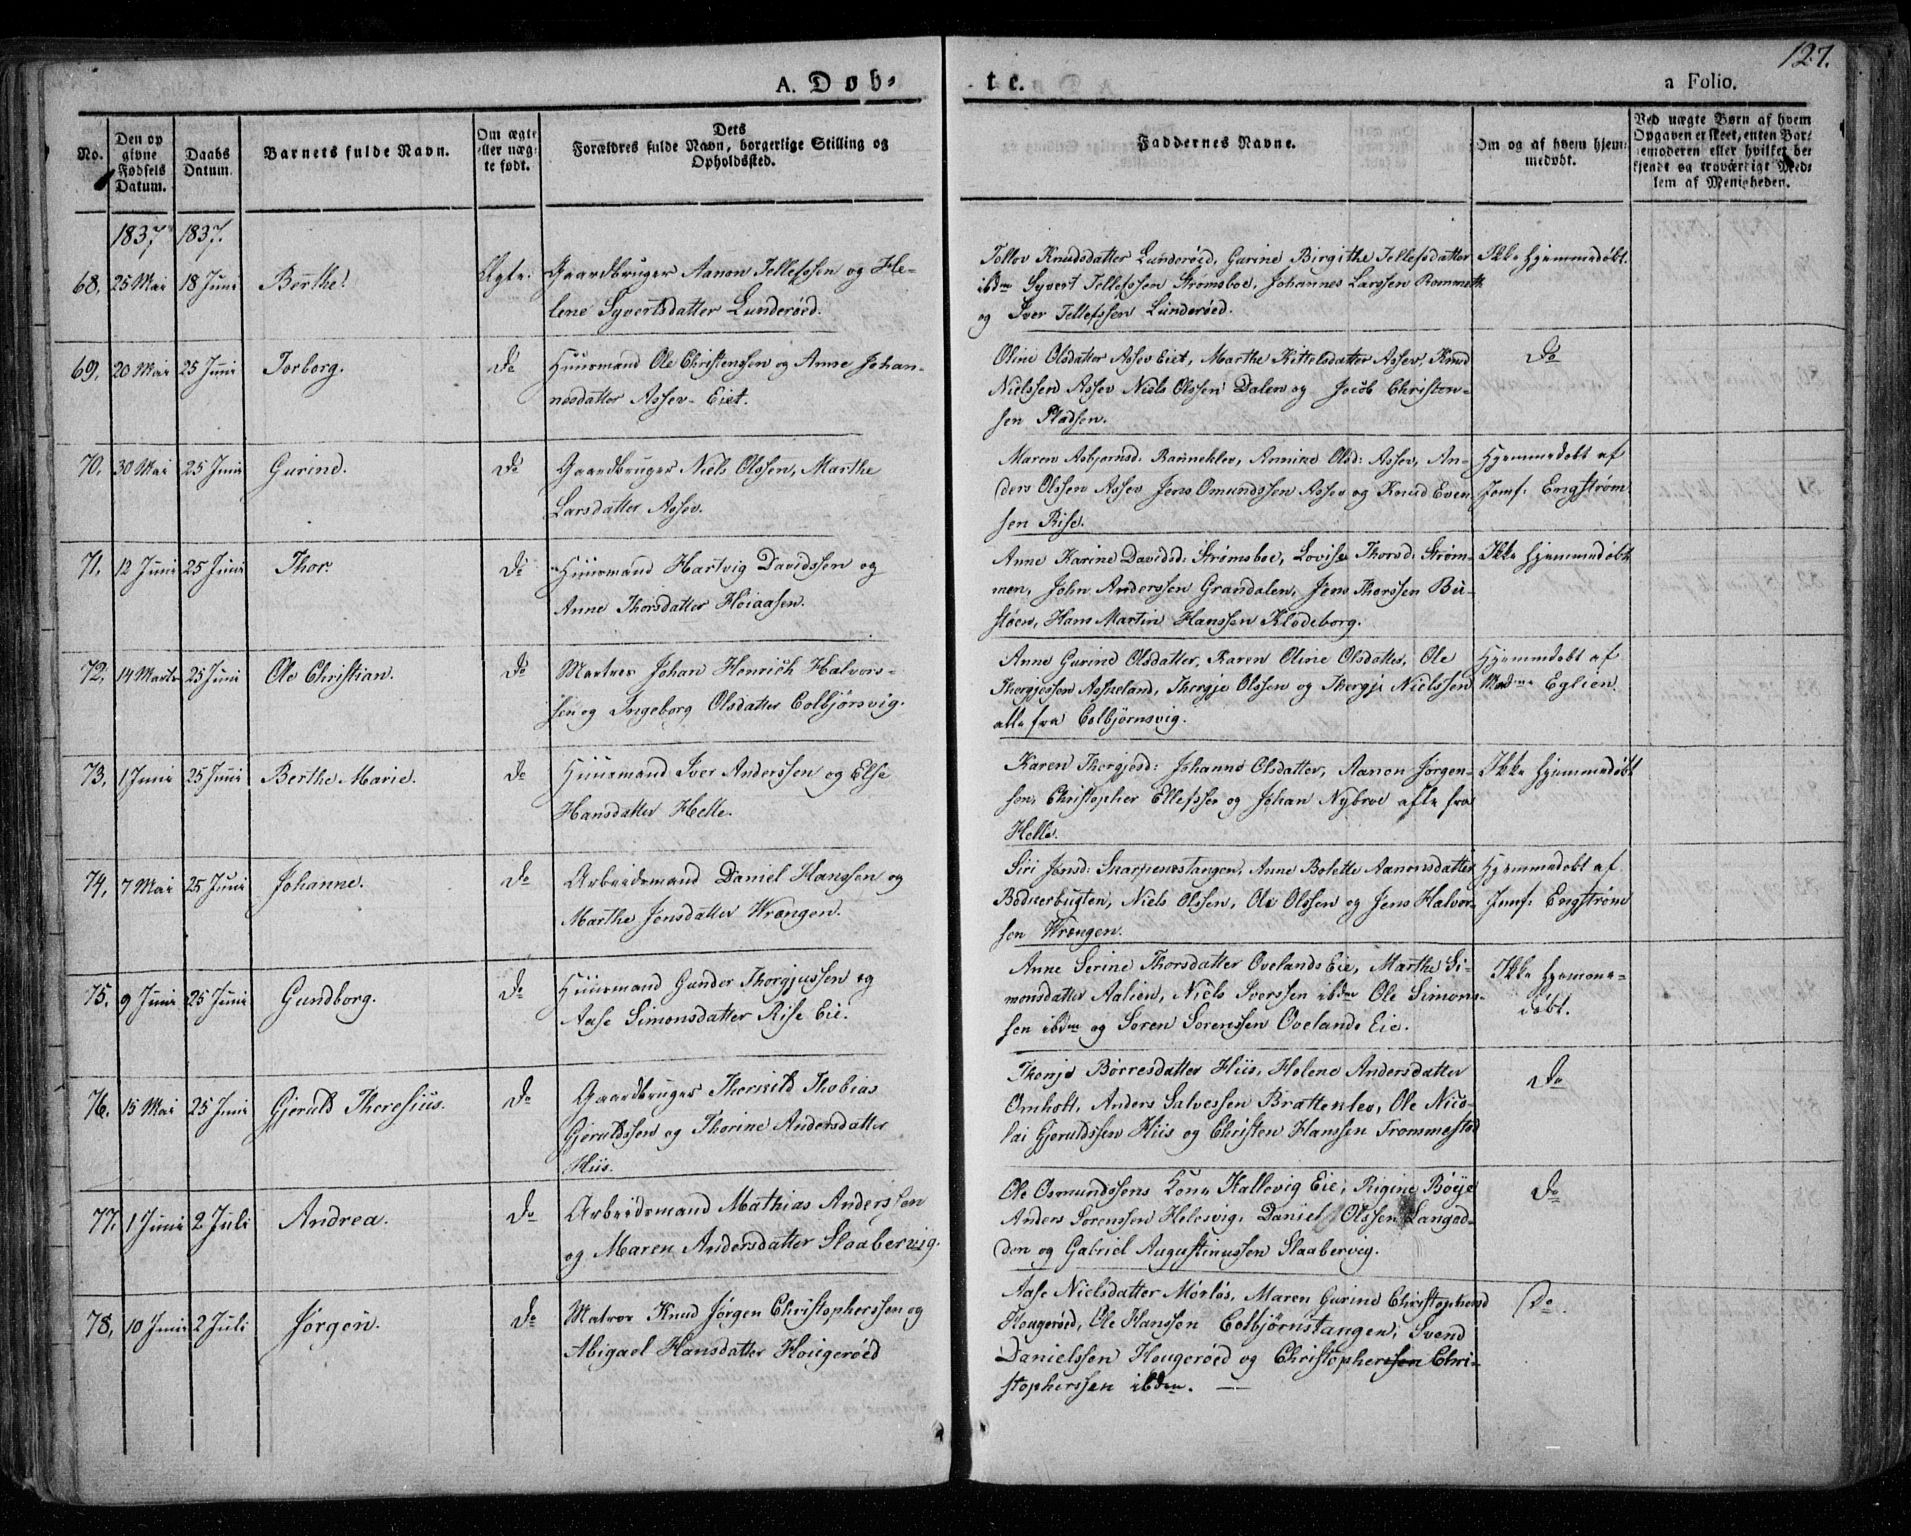 127.
A. Døb-
te.
a Folio.
No.
Den opgivne Fødsels Datum.
Daabs Datum.
Barnets fulde Navn.
Om ægte eller uægte født.
Dets Forældres fulde Navn, borgerlige Stilling og Opholdssted.
Faddernes Navne.
Om og af hvem hjemmedøbt.
Ved uægte Børn af hvem Opgaven er skeet, enten Barnemoderen eller hvilket bekjendt og troværdigt Medlem af Menigheden.
1837 1837.
68. 25 Mai 18 Juni Berthe. Ægte. Gaardbruger Aanon Tellefssen og He-
lene Syvertsdatter Lunderøed.
Tollov Knudsdatter Lunderøed, Gurine Birgithe Tellefsdatter
ibdm Syvert Tellefssen Strømsboe, Johannes Larssen
og Iver Tellefssen Lunderøed.
Ikke Hjemmedøbt.
69. 20 Mai 25 Juni Torborg. Do Huusmand Ole Christenssen og Anne Johan-
nesdatter Assev-Eiet.
Oline Olsdatter Assev Eiet, Marthe Kittelsdatter Assev, Knud
Nielssen Assev Niels Olssen Dalen og Jacob Christen-
sen Pladsen.
Do
70. 30 Mai 25 Juni Gurine. Do Gaardbruger Niels Olssen, Marthe
Larsdatter Assev.
Maren Asbjørnsd: Ranneklev, Annine Olsd: Assev, An-
ders Olssen Assev Jens Omundssen Assev og Knud Even-
sen Rise.
Hjemmedøbt af
Jomf: Engstrøm
71. 12 Juni 25 Juni Thor. Do Huusmand Hartvig Davidssen og
Anne Thorsdatter Høiaasen.
Anne Karine Davidsd: Strømsboe, Lovise Thorsd: Strøm-
men, John Anderssen Grandalen, Jens Thorssen Bu-
støen, Hans Martin Hanssen Klodeborg.
Ikke Hjemmedøbt
72. 14 Marts 25 Juni Ole Christian. Do Matros Johan Henrich Halvors-
sen og Ingeborg Olsdatter Colbjørsvig.
Anne Gurine Olsdatter, Karen Oline Olsdatter, Ole
Thergjessen Aspeland, Thergje Olssen og Thergje Nielssen
alle fra Colbjørnsvig.
Hjemmedøbt af
Madme Eglien.
73. 1 Juni 25 Juni Berthe Marie. Do Huusmand Iver Anderssen og Else
Hansdatter Helle.
Karen Thergjesd: Johanne Olsdatter, Aanon Jørgen-
sen, Christopher Ellefssen og Johan Nybroe alle fra
Helle.
Ikke Hjemmedøbt
74. 7 Mai 25 Juni Johanne. Do Arbeidsmand Daniel Hanssen og
Marthe Jensdatter Wrengen.
Siri Jensd: Skarpenestangen, Anne Bolette Aanonsdatter
Bødkerbugten, Niels Olssen, Ole Olssen og Jens Halvor-
sen Wrengen.
Hjemmedøbt af
Jomf: Engstrøm
75. 9 Juni 25 Juni Gundborg. Do Huusmand Gunder Thorgjussen og
Aase Simonsdatter Rise Eie.
Anne Serine Thorsdatter Ovelands Eie, Marthe Si-
monsdatter Aalien, Niels Iverssen ibdm Ole Simons-
sen ibdm og Søren Sørenssen Ovelands Eie.
Ikke hjemme-
døbt.
76. 15 Mai 25 Juni Gjeruld Theresius. Do Gaardbruger Thorkild Thobias
Gjeruldssen og Thorine Andersdatter
Hiis.
Thonje Børresdatter Hiis, Helene Andersdatter
Omholt, Anders Salvessen Brattenlev, Ole Nico-
lai Gjeruldssen Hiis og Christen Hanssen Trommestad
Do
77. 1 Juni 2 Juli Andrea. Do Arbeidsmand Mathias Anderssen
og Maren Andersdatter Slaabervig.
Ole Osmundssens Kone Hallevig Eie, Rigine Bøeje
Anders Sørenssen Helesvig, Daniel Olssen Langød-
den og Gabriel Augustinussen Slaaberveg.
Do
78. 10 Juni 2 Juli Jørgen. Do Matros Knud Jørgen Christopherssen og
Abigael Hansdatter Hougerøed
Aase Nielsdatter Mørfos, Maren Gurine Christophersd
Hougerøed, Ole Hanssen Colbjørnstangen, Svend
Danielssen Hougerøed og Christophersen Chri-
stopherssen ibdm.
Do.